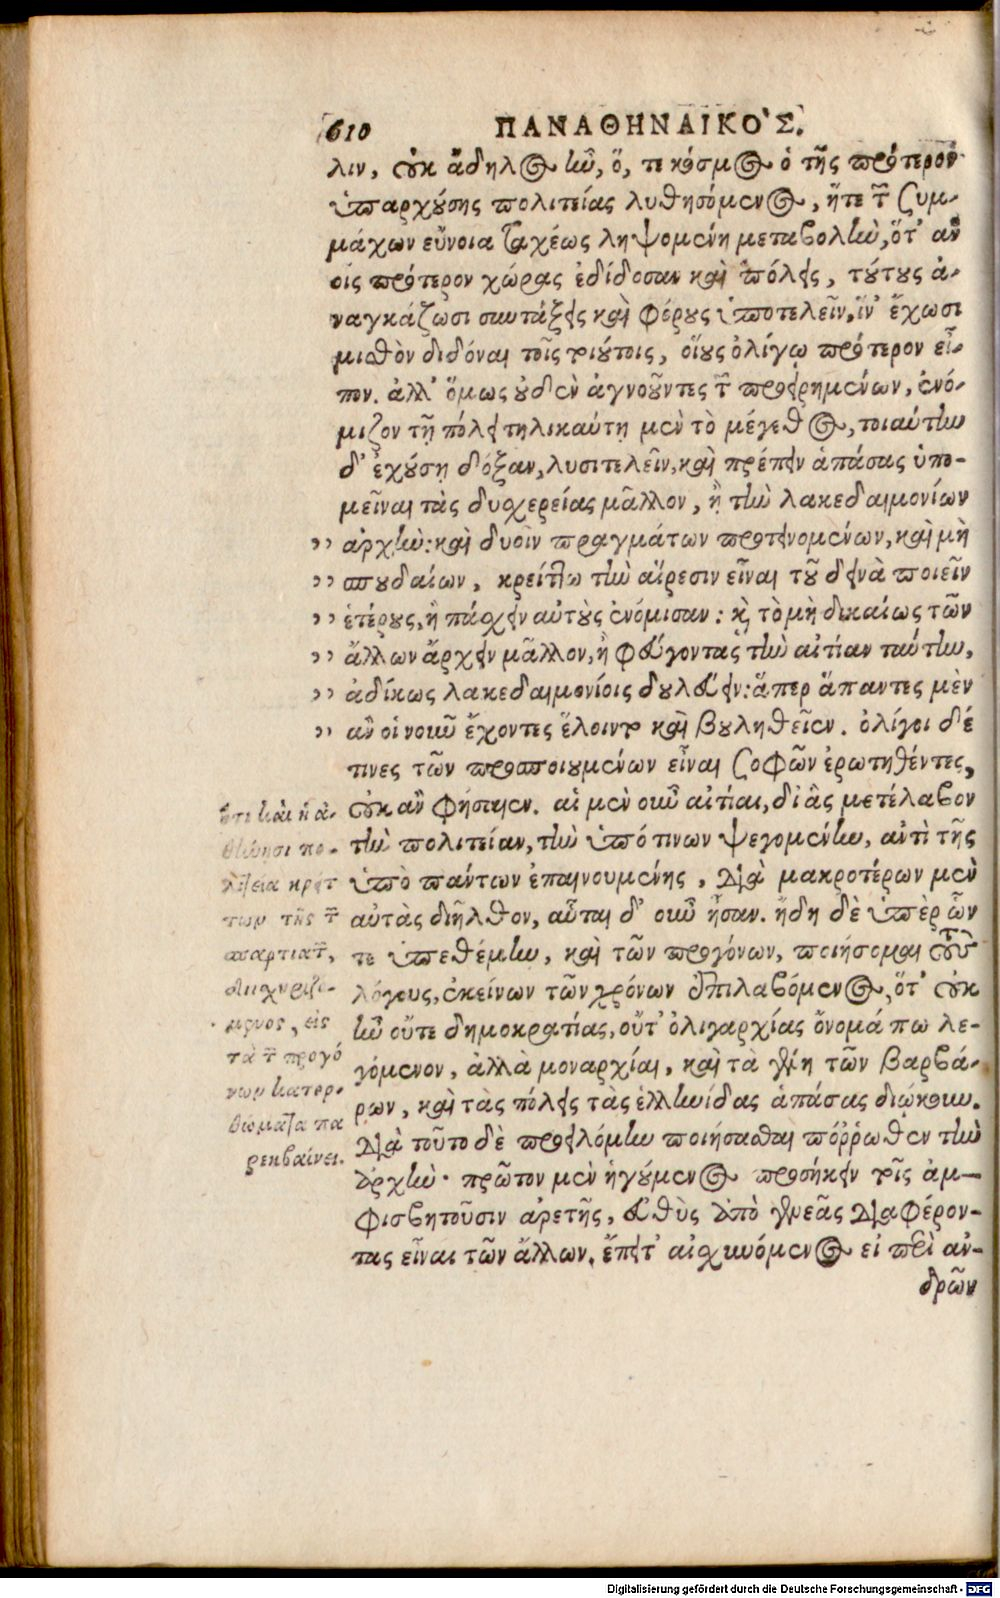 610 ΠΑΝΑΘΗΝΑΙΚΟ'Σ.
λιν, οὐκ ἄδηλος ἦν, ὅ, τε κόσμος ὁ τῆς πρότερον
ὑπαρχούσης πολιτείας λυθησόμενος, ἥτε τῶν συμ-
μάχων εὔνοια ταχέως ληψομένη μεταβολὴν, ὅτ' ἂν
οἷς πρότερον χώρας ἐδίδοσαν καὶ πόλεις, τούτους ἀ-
ναγκάζωσι συντάξεις καὶ φόρους ὑποτελεῖν, ἵν' ἔχωσι
μισθὸν διδόναι τοῖς τοιούτοις, οἵους ὀλίγῳ πρότερον εἶ-
πον. ἀλλ' ὅμως οὐδὲν ἀγνοοῦντες τῶν προειρημένων, ἐνό-
μιζον τῇ πόλει τηλικαύτῃ μὲν τὸ μέγεθος, τοιαύτην
δ' ἐχούσῃ δόξαν, λυσιτελεῖν, καὶ πρέπειν ἁπάσας ὑπο-
μεῖναι τὰς δυσχερείας μᾶλλον, ἢ τὴν λακεδαιμονίων
,, ἀρχὴν: καὶ δυοῖν πραγμάτων προτεινομένων, καὶ μὴ
,, σπουδαίων, κρείττω τὴν αἵρεσιν εἶναι τοῦ δεινὰ ποιεῖν
,, ἑτέρους, ἢ πάσχειν αὐτοὺς ἐνόμισαν: καὶ τὸ μὴ δικαίως τῶν
,, ἄλλων ἄρχειν μᾶλλον, ἢ φεύγοντας τὴν αἰτίαν ταύτην,
,, ἀδίκως λακεδαιμονίοις δουλεύειν: ἅπερ ἅπαντες μὲν
,, ἂν οἱ νοῦν ἔχοντες ἕλοιντο καὶ βουληθεῖεν. ὀλίγοι δέ
τινες τῶν προσποιουμένων εἶναι σοφῶν ἐρωτηθέντες,
οὐκ ἂν φήσαιεν. αἱ μὲν οὖν αἰτίαι, δι' ἃς μετέλαβον
τὴν πολιτείαν, τὴν ὑπό τινων ψεγομένην, ἀντὶ τῆς
ὑπὸ πάντων ἐπαινουμένης, διὰ μακροτέρων μὲν
αὐτὰς διῆλθον, αὗται δ' οὖν ἦσαν. ἤδη δὲ ὑπὲρ ὧν
τε ὑπεθέμην, καὶ τῶν προγόνων, ποιήσομαι τοὺς
λόγους, ἐκείνων τῶν χρόνων ἐπιλαβόμενος, ὅτ' οὐκ
ἦν οὔτε δημοκρατίας, οὔτ' ὀλιγαρχίας ὄνομά πω λε-
γόμενον, ἀλλὰ μοναρχίαι, καὶ τὰ γένη τῶν βαρβά-
ρων, καὶ τὰς πόλεις τὰς ἑλληνίδας ἁπάσας διῴκουν.
διὰ τοῦτο δὲ προειλόμην ποιήσασθαι πόῤῥωθεν τὴν
ἀρχὴν· πρῶτον μὲν ἡγούμενος προσήκειν τοῖς ἀμ-
φισβητοῦσιν ἀρετῆς, εὐθὺς ἀπὸ γενεᾶς διαφέρον-
τας εἶναι τῶν ἄλλων. ἔπειτ' αἰσχυνόμενος εἰ περὶ ἀν-
δρῶν
ὅτι καὶ ἡ ἀ-
θήνησι πο-
λιτεία κρείτ
των τῆς τῶν
σπαρτιατῶν,
διισχυριζό-
μενος, εἰς
τὰ τῶν προγό
νων κατορ-
θώματα πα
ρεκβαίνει.
Digitalisierung gefördert durch die Deutsche Forschungsgemeinschaft - DFG